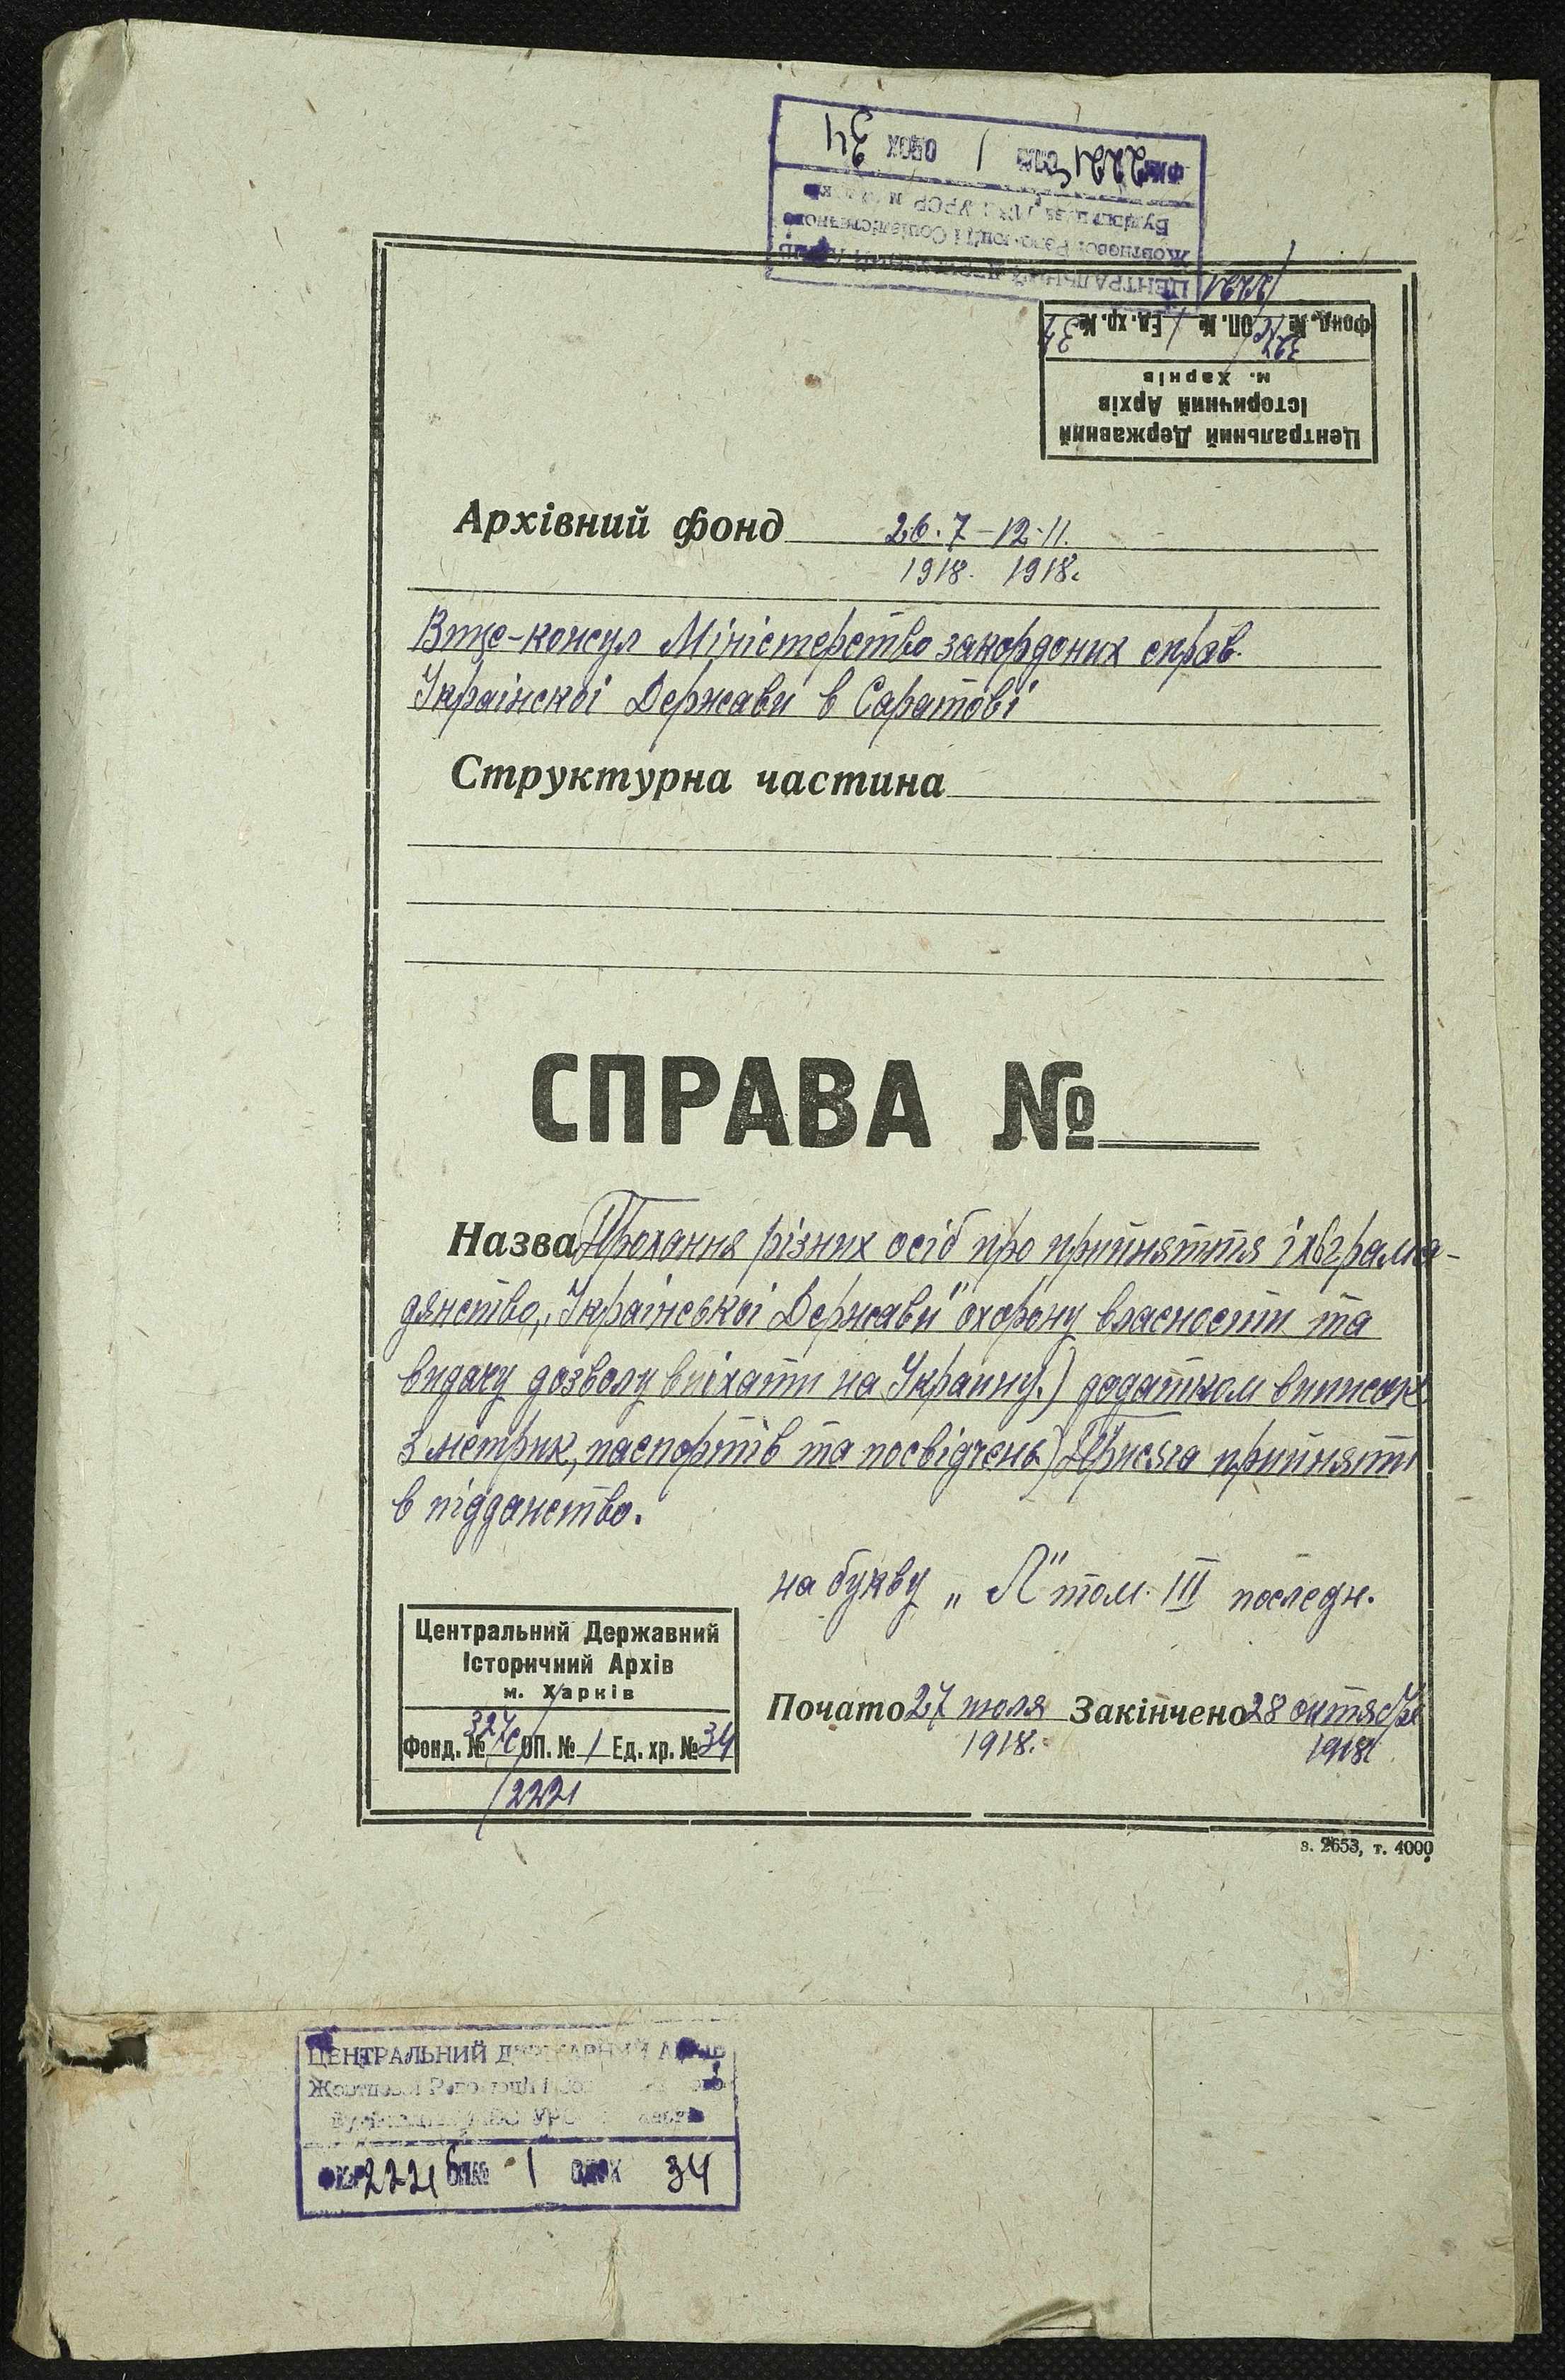 ФК№ 2221 ОП№ 1 ОДОХ 34
ЦЕНТРАЛЬНИЙ
Жовтневої Революції і Соціалістичного
УРСР м.
/2221
Фонд. № 327с/ ОП. № 1 Ед. хр. № 34
Центральний Державний
Історичний Архів
м. Харків
Архівний фонд 26.7-12-11.
1918. 1918.
Віце-консул Міністерство закордоних справ.
Українскоі Держави в Саратові
Структурна частина
СПРАВА №
Назва Прохання різних осіб про прийняття іх в грама-
дянство, „Української Держави" охорону власности та
видачу дозволу виїхати на Украину.) додатком виписок
з метрик, паспортів та посвідчень) Присяга прийняти
в підданство.
на букву „Л" том. III последн.
Центральний Державний
Історичний Архів
м. Харків
Фонд. № 327с/ ОП. № 1 Ед. хр. № 34
/2221
Почато 27 июля Закінчено 28 октября
1918. 1918
з. 2653, т. 4000
ЦЕНТРАЛЬНИЙ ДЕРЖАВНИЙ АРХІВ
Жовтневої Революції
УРСР
2221 ОП№ 1 ОДОХ 34